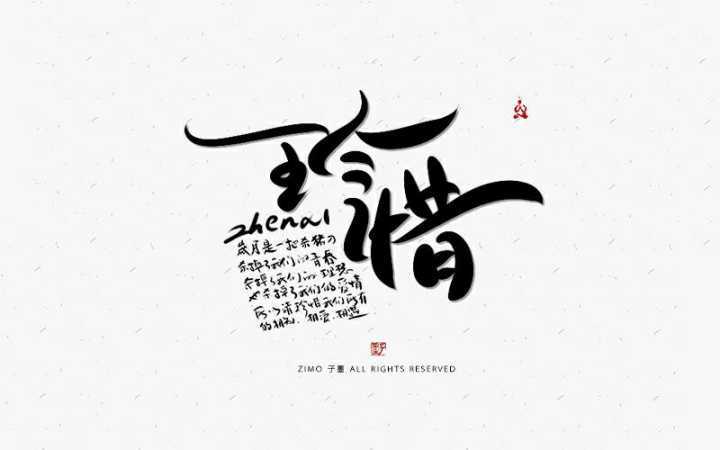 珍惜
zhenai
岁月是一把杀猪刀
杀掉了我们的青春
杀掉了我们的理想
也杀掉了我们的爱情
所以请珍惜我们所有
的相知、相爱、相望
ZIMO 子墨 ALL RIGHTS RESERVED